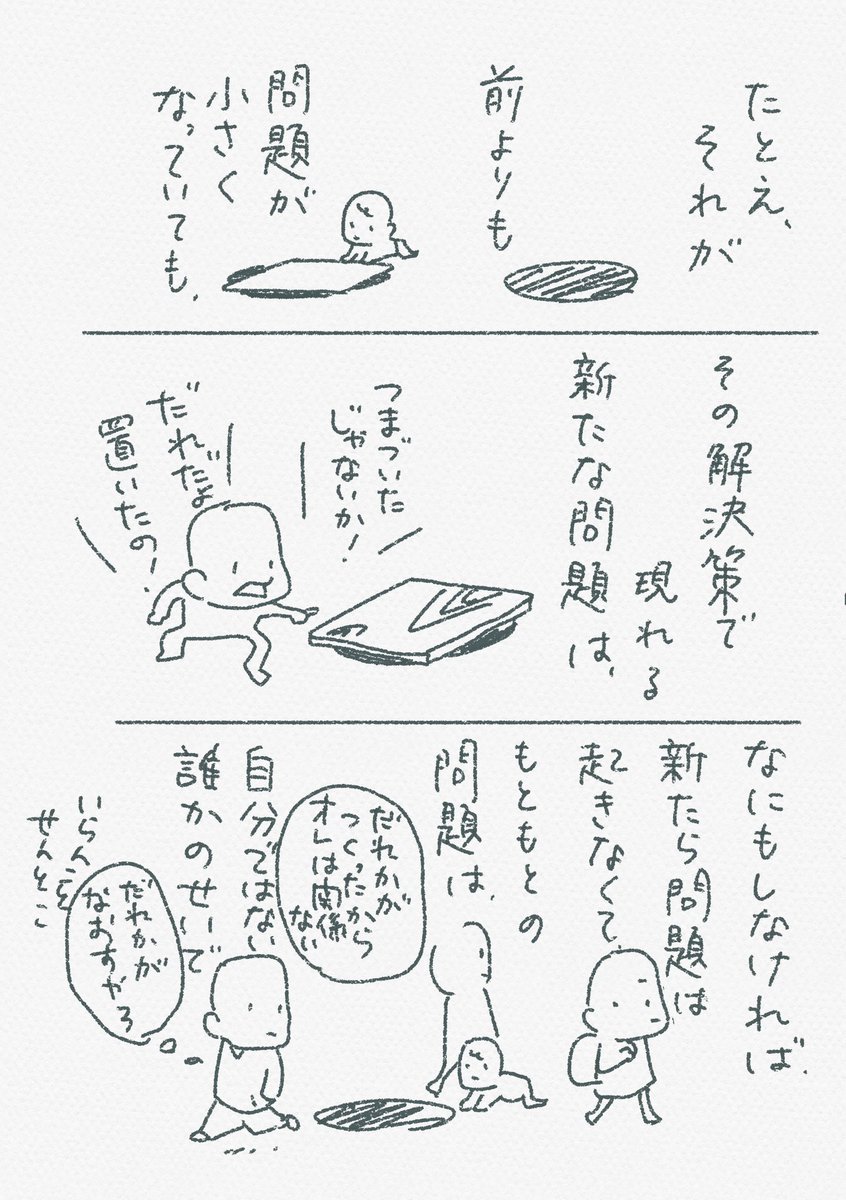 たとえ、
それが
前よりも
問題が
小さく
なっていても、
その解決策で
現れる
新たな問題は、
つまづいた
じゃないか!
だれだよ
置いたの!
なにもしなければ、
新たら問題は
起きなくて、
もともとの
問題は、
だれかが
つくったから
オレは関係
ない
自分ではない
誰かのせいで
だれかが
なおすやろ
いらんことを
せんとこ